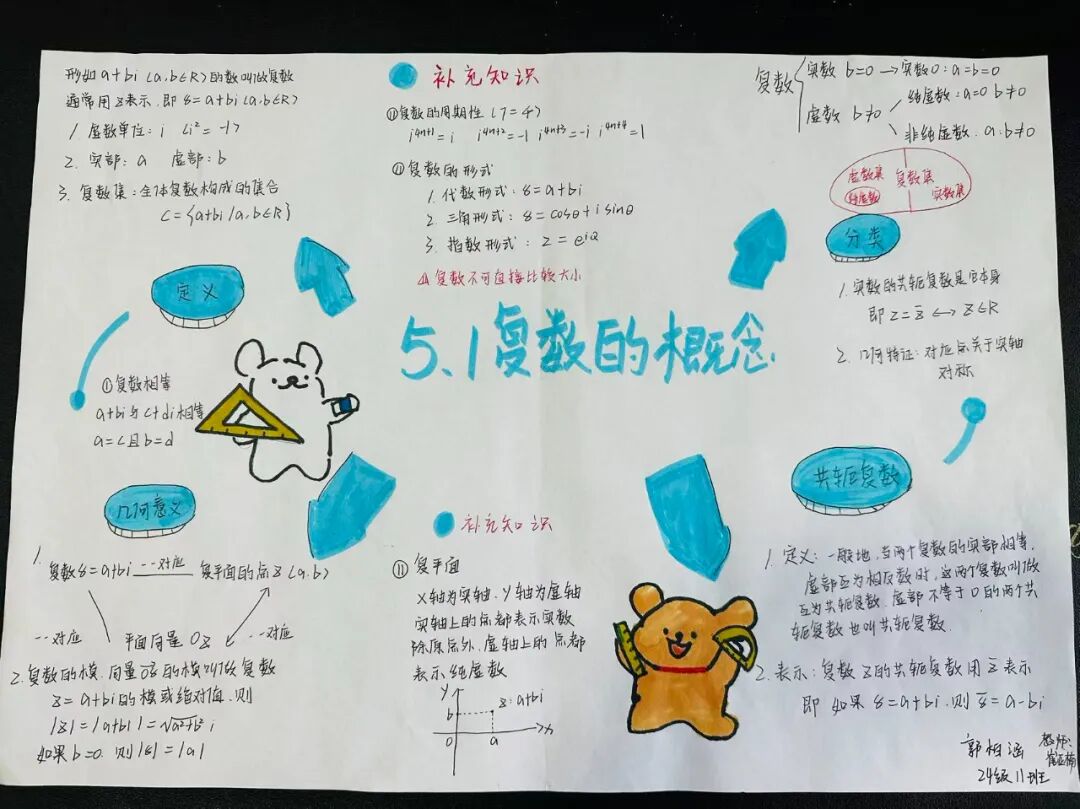 5.1复数的概念
形如a+bi(a,b∈R)的数叫做复数
通常用z表示,即z=a+bi(a,b∈R)
1.虚数单位:i (i²=-1)
2.实部:a 虚部:b
3.复数集:全体复数构成的集合
C={a+bi|a,b∈R}
定义
①复数相等
a+bi与c+di相等
a=c且b=d
补充知识
①复数的周期性(T=4)
i⁴ⁿ⁺¹=i i⁴ⁿ⁺²=-1 i⁴ⁿ⁺³=-i i⁴ⁿ⁺⁴=1
②复数的形式
1.代数形式:z=a+bi
2.三角形式:z=cosθ+isinθ
3.指数形式:z=e^iθ
复数不可直接比较大小
复数
实数 b=0→实数0:a=b=0
虚数 b≠0
纯虚数:a=0 b≠0
非纯虚数:a·b≠0
虚数集 复数集
纯虚数 实数集
分类
1.实数的共轭复数是它本身
即z=z̄↔z∈R
2.几何特征:对应点关于实轴
对称
共轭复数
1.定义:一般地,当两个复数的实部相等,
虚部互为相反数时,这两个复数叫做
互为共轭复数.虚部不等于0的两个共
轭复数也叫共轭复数.
2.表示:复数z的共轭复数用z̄表示
即 如果z=a+bi,则z̄=a-bi
几何意义
1.
复数z=a+bi 一一对应 复平面的点z(a,b)
一一对应 平面向量OZ 一一对应
2.复数的模.向量OZ的模叫做复数
z=a+bi的模或绝对值.则
|z|=|a+bi|=√a²+b² i
如果b=0.则|z|=|a|
补充知识
① 复平面
x轴为实轴.y轴为虚轴
实轴上的点都表示实数
除原点外,虚轴上的点都
表示纯虚数
y
b
z:a+bi
0 a x
郭柏涵
24级11班
教师: